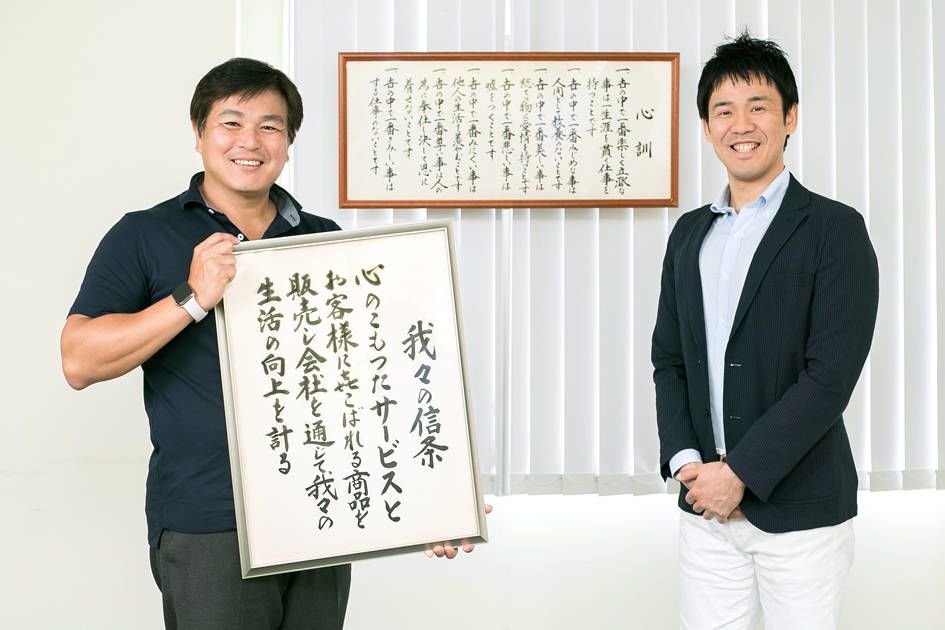 心訓
一世の中で一番楽しく立派な
事は一生涯を貫く仕事を
持つことです
一世の中で一番みじめな事は
人間として教養のないことです
一世の中で一番美しい事は
総て物に愛情を持つことです
一世の中で一番悲しい事は
嘘をつくことです
一世の中で一番みにくい事は
他人の生活を羨むことです
一世の中で一番尊い事は人の
為に奉仕し決して恩に
着せないことです
一世の中で一番さみしい事は
する仕事のないことです
我々の信条
心のこもつたサービスと
お客様に㐂こばれる商品を
販売し会社を通して、我々の
生活の向上を計る